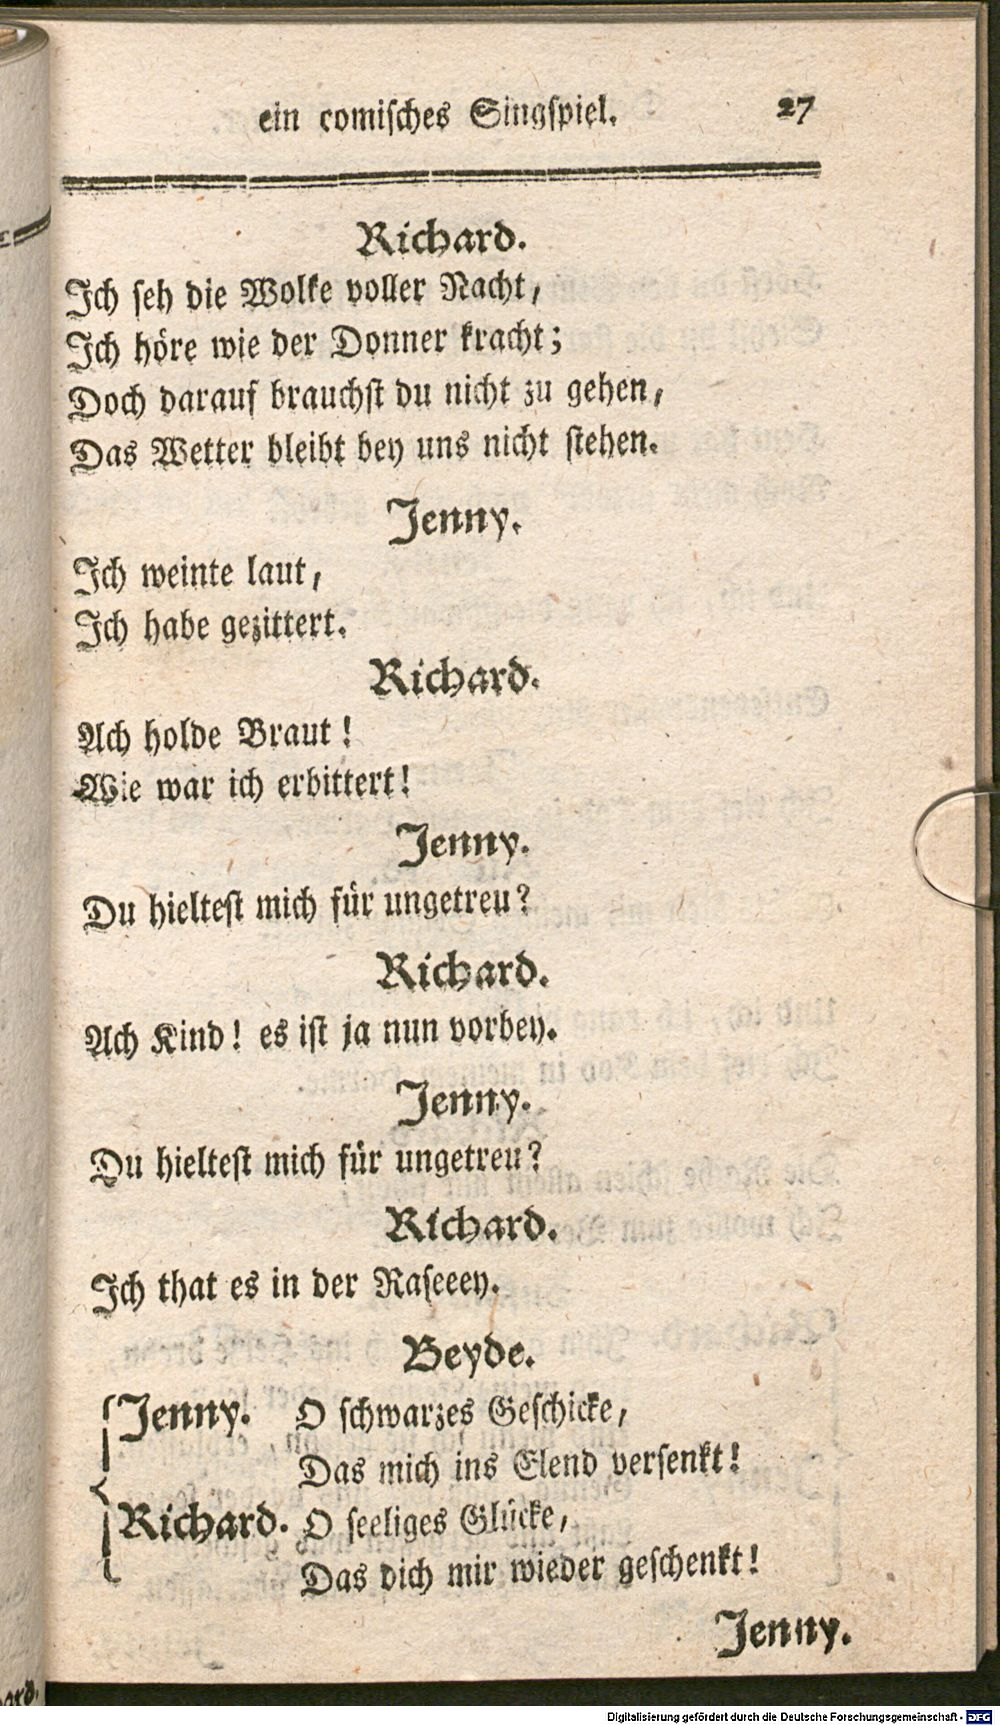 ein comisches Singspiel. 27
Richard.
Ich seh die Wolke voller Nacht,
Ich höre wie der Donner kracht;
Doch darauf brauchst du nicht zu gehen,
Das Wetter bleibt bey uns nicht stehen.
Jenny.
Ich weinte laut,
Ich habe gezittert.
Richard.
Ach holde Braut!
Wie war ich erbittert!
Jenny.
Du hieltest mich für ungetreu?
Richard.
Ach Kind! es ist ja nun vorbey.
Jenny.
Du hieltest mich für ungetreu?
Richard.
Ich that es in der Raseeey.
Beyde.
Jenny. O schwarzes Geschicke,
Das mich ins Elend versenkt!
Richard. O seeliges Glücke,
Das dich mir wieder geschenkt!
Jenny.
Digitalisierung gefördert durch die Deutsche Forschungsgemeinschaft - DFG